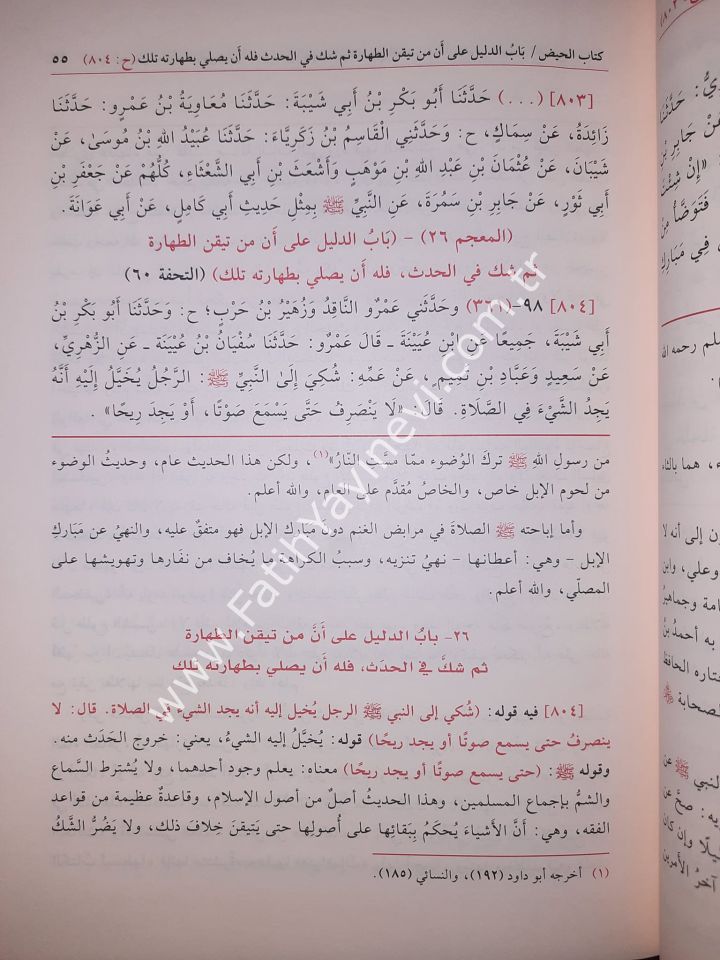 كتاب الحيض / بَابُ الدليل على أَن من تيقن الطهارة ثم شك في الحدث فله أَن يصلي بطهارته تلك (ح: ٨٠٤) ٥٥
[٨٠٣] (...) حَدَّثَنَا أَبُو بَكْرِ بْنُ أَبِي شَيْبَةَ: حَدَّثَنَا مُعَاوِيَةُ بْنُ عَمْرٍو: حَدَّثَنَا
زَائِدَةُ، عَنْ سِمَاكٍ، ح: وَحَدَّثَنِي الْقَاسِمُ بْنُ زَكَرِيَّاءَ: حَدَّثَنَا عُبَيْدُ اللهِ بْنُ مُوسَىٰ، عَنْ
شَيْبَانَ، عَنْ عُثْمَانَ بْنِ عَبْدِ اللهِ بْنِ مَوْهَبٍ وَأَشْعَثَ بْنِ أَبِي الشَّعْثَاءِ، كُلُّهُمْ عَنْ جَعْفَرِ بْنِ
أَبِي ثَوْرٍ، عَنْ جَابِرِ بْنِ سَمُرَةَ، عَنِ النَّبِيِّ ﷺ بِمِثْلِ حَدِيثِ أَبِي كَامِلٍ، عَنْ أَبِي عَوَانَةَ.
(المعجم ٢٦) - (بَابُ الدليل على أَن من تيقن الطهارة
ثم شك في الحدث، فله أَن يصلي بطهارته تلك) (التحفة ٦٠)
[٨٠٤] ٩٨-(٣٦١) وحَدَّثَنِي عَمْرٌو النَّاقِدُ وَزُهَيْرُ بْنُ حَرْبٍ؛ ح: وَحَدَّثَنَا أَبُو بَكْرِ بْنُ
أَبِي شَيْبَةَ، جَمِيعًا عَنِ ابْنِ عُيَيْنَةَ - قَالَ عَمْرٌو: حَدَّثَنَا سُفْيَانُ بْنُ عُيَيْنَةَ - عَنِ الزُّهْرِيِّ،
عَنْ سَعِيدٍ وَعَبَّادِ بْنِ تَمِيمٍ، عَنْ عَمِّهِ: شُكِيَ إِلَى النَّبِيِّ ﷺ: الرَّجُلُ يُخَيَّلُ إِلَيْهِ أَنَّهُ
يَجِدُ الشَّيْءَ فِي الصَّلَاةِ. قَالَ: «لَا يَنْصَرِفُ حَتَّىٰ يَسْمَعَ صَوْتًا، أَوْ يَجِدَ رِيحًا».
من رسولِ اللهِ ﷺ تركَ الوُضوء ممّا مسَّتِ النّارُ»(١)، ولكن هذا الحديث عام، وحديثُ الوضوء
من لحوم الإبل خاص، والخاصُّ مُقدَّم على العام، والله أعلم.
وأما إباحته ﷺ الصلاةَ في مرابض الغنم دونَ مَبَارك الإبل فهو متفقٌ عليه، والنهيُ عن مَبَاركِ
الإبل - وهي: أعطانها - نهيُ تنزيه، وسببُ الكراهة ما يُخاف من نفارها وتهويشها على
المصلّي، والله أعلم.
٢٦- بابُ الدليل على أَنَّ من تيقن الطهارة
ثم شكَّ في الحدَث، فله أَن يصلي بطهارته تلك
[٨٠٤] فيه قوله: (شُكي إلى النبي ﷺ الرجل يُخيل إليه أنه يجد الشيء في الصلاة. قال: لا
ينصرفُ حتى يسمع صوتًا أو يجد ريحًا) قوله: يُخَيَّلُ إليه الشيءُ، يعني: خروج الحَدَث منه.
وقوله ﷺ: (حتى يسمع صوتًا أو يجد ريحًا) معناه: يعلم وجود أحدهما، ولا يُشترط السَّماع
والشمُّ بإجماع المسلمين، وهذا الحديثُ أصلٌ من أصول الإسلام، وقاعدةٌ عظيمة من قواعد
الفقه، وهي: أنَّ الأشياءَ يُحكَمُ بِبَقائِها على أُصولِها حتى يَتيقنَ خِلافَ ذلك، ولا يَضُرُّ الشَّكُ
(١) أخرجه أبو داود (١٩٢)، والنسائي (١٨٥).
www.FatihYayinevi.com.tr